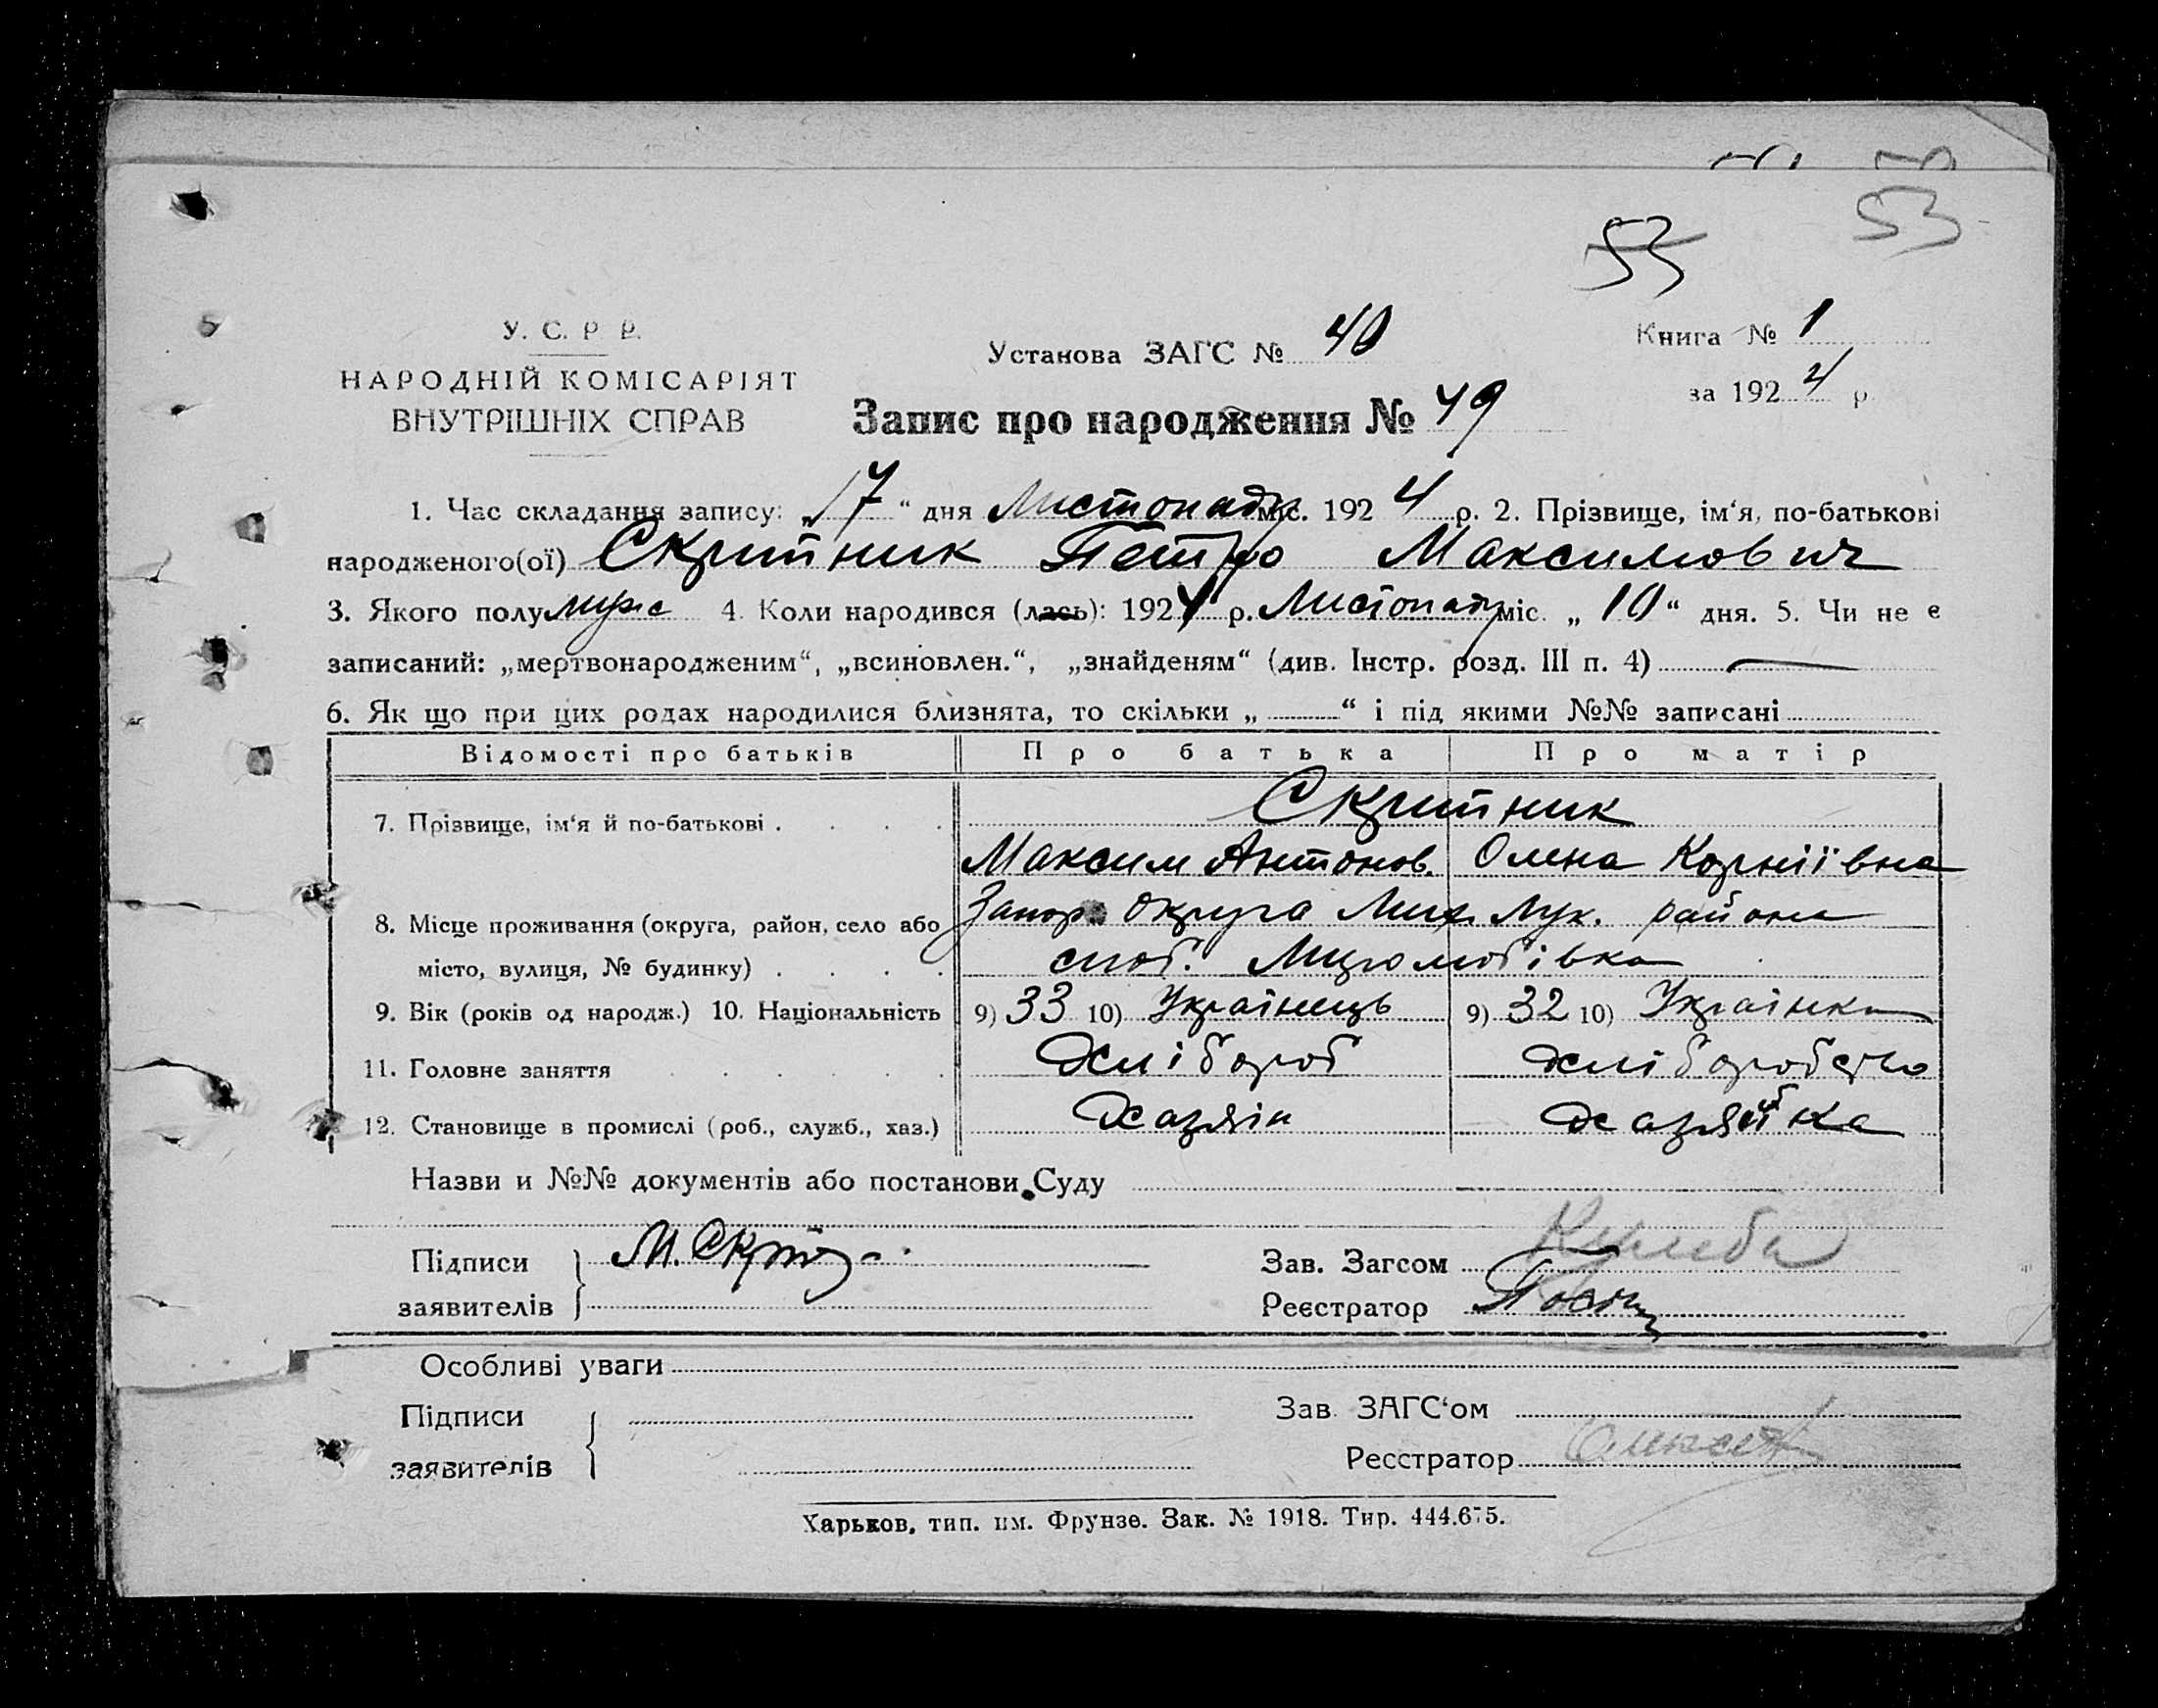 53
53
У. С. Р. Р.
НАРОДНІЙ КОМІСАРІЯТ
ВНУТРІШНІХ СПРАВ
Установа ЗАГС № 40
Книга № 1
за 1924 р.
Запис про народження № 49
1. Час складання запису: „17“ дня Листопаду міс. 1924 р. 2. Прізвище, ім‘я, по-батькові
народженого(ої) Скрипник Петро Максимович
3. Якого полу муж 4. Коли народився (лась): 1924 р. Листопаду міс. „10“ дня. 5. Чи не є
записаний: „мертвонародженим“, „всиновлен.“, „знайденям“ (див. Інстр. розд. III п. 4) —
6. Як що при цих родах народилися близнята, то скільки „ “ і під якими №№ записані
Відомості про батьків Про батька Про матір
Скрипник
7. Прізвище, ім‘я й по-батькові
Максим Антонов. Олена Корніївна
Запор округа Мих Лук. района
8. Місце проживання (округа, район, село або
місто, вулиця, № будинку)
9. Вік (років од народж.) 10. Національність 9) 33 10) Українець 9) 32 10) Українка
11. Головне заняття хлібороб хліборобство
12. Становище в промислі (роб., служб., хаз.) хазяїн хазяйка
Назви и №№ документів або постанови Суду
Підписи М.
заявителів
Зав. Загсом
Реєстратор
Особливі уваги
Підписи
заявителів
Зав. ЗАГС‘ом
Реєстратор
Харьков, тип. им. Фрунзе. Зак. № 1918. Тир. 444.675.